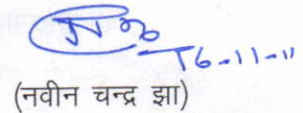 16-11-11
(नवीन चन्द्र झा)